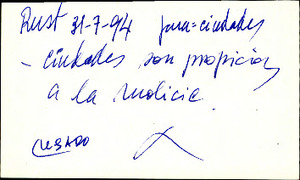 Rust 31-7-94 para = ciudades
- ciudades son propicias
a la molicie.
USADO